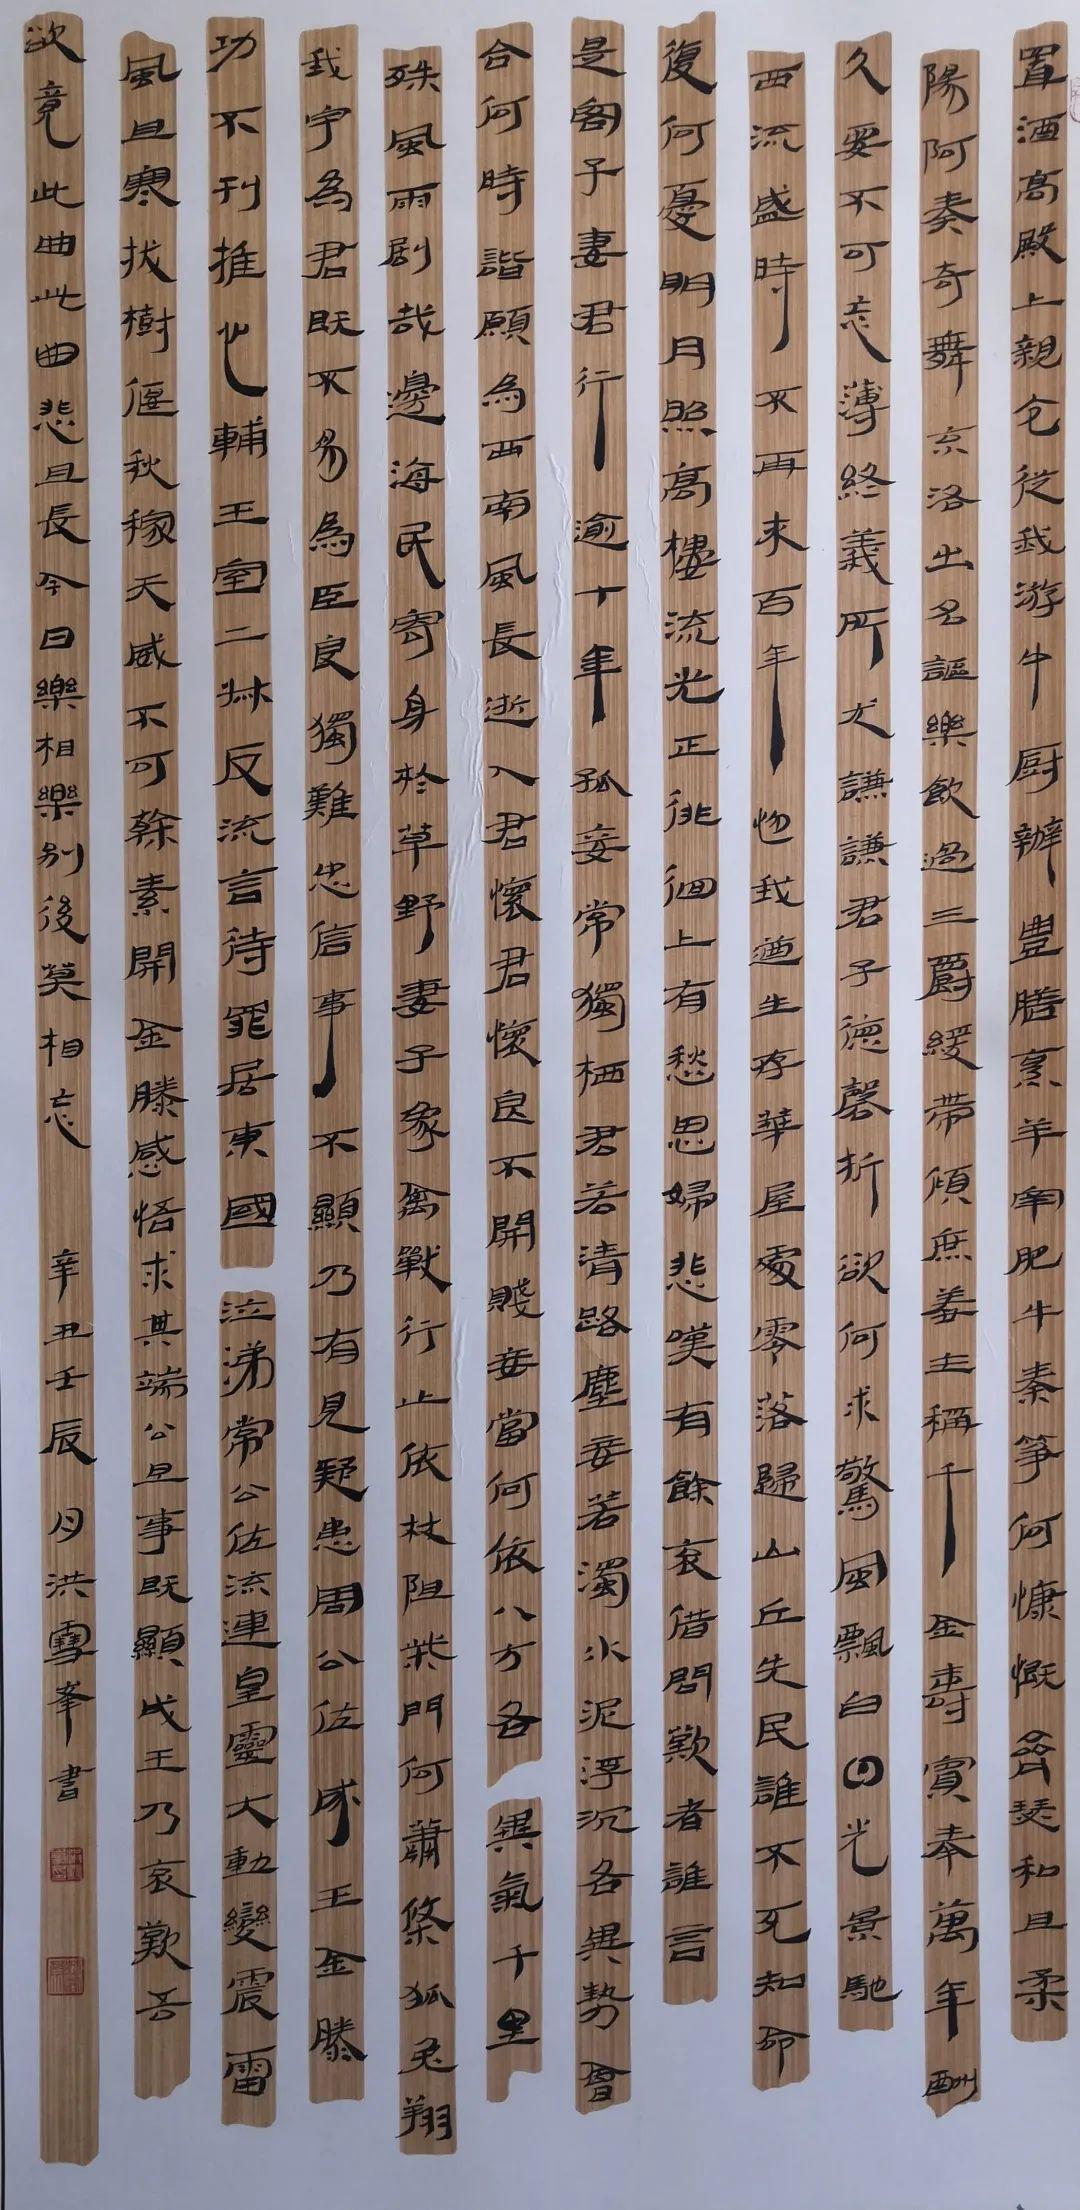 置酒高殿上親仑從我游中厨辦豊膳烹羊宰肥牛秦箏何慷慨齊瑟和且柔
陽阿奏奇舞京洛出名謳樂飲過三爵緩帶傾庶羞主稱千金壽賓奉萬年酬
久要不可忘薄終義所尤謙謙君子德磬折欲何求驚風飄白日光景馳
西流盛時不再来百年忽我遒生存華屋處零落歸山丘先民誰不死知命
復何憂明月照高樓流光正徘徊上有愁思婦悲嘆有餘哀借問歎者誰言
是客子妻君行逾十年孤妾常獨栖君若清路塵妾若濁水泥浮沉各異勢會
合何時諧願為西南風長逝入君懷君懷良不開賤妾當何依八方各異氣千里
殊風雨劇哉邊海民寄身於草野妻子象禽獸行止依林阻柴門何蕭條狐兔翔
我宇為君既不易為臣良獨難忠信事不顯乃有見疑患周公佐成王金縢
功不刊推心輔王室二叔反流言待罪居東國泣涕常公佐流連皇靈大動變震雷
風且寒拔樹偃秋稼天威不可幹素開金縢感悟求其端公旦事既顯成王乃哀歎吾
欲竟此曲此曲悲且長今日樂相樂别後莫相忘 辛丑壬辰月洪雪峯書